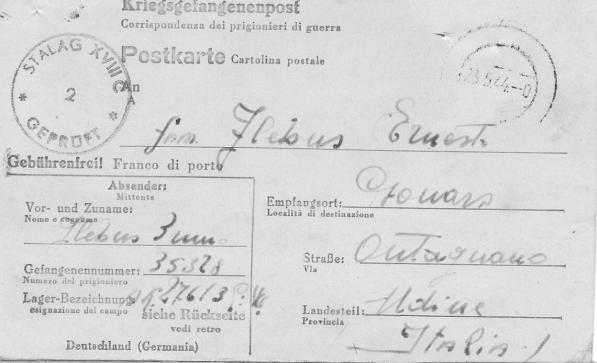 Kriegsgefangenenpost
Corrispondenza dei prigionieri di guerra
Postkarte Cartolina postale
STALAG XVIII C
2
GEPRÜFT
An
A
Ilebus Ernesto
Gebührenfrei! Franco di porto
Absender:
Mittente
Vor- und Zuname:
Nome e cognome
Ilebus
Gefangenennummer: 35328
Numero del prigioniero
Lager-Bezeichnung
esignazione del campo
siehe Rückseite
vedi retro
Deutschland (Germania)
Empfangsort: Gonars
Località di destinazione
Straße: Ontagnano
Via
Landesteil: Udine
Provincia
Italia!